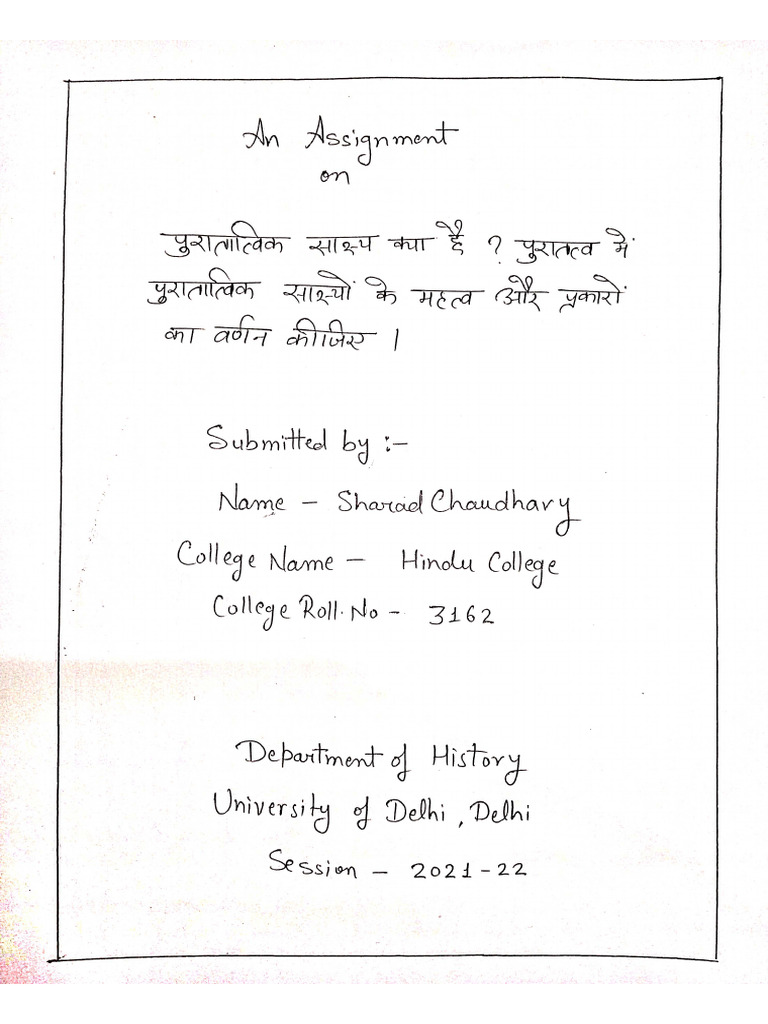 An Assignment
on
पुरातात्विक साक्ष्य क्या है ? पुरातत्व में
पुरातात्विक साक्ष्यों के महत्व और प्रकारों
का वर्णन कीजिए ।
Submitted by :-
Name - Sharad Chaudhary
College Name - Hindu College
College Roll. No - 3162
Department of History
University of Delhi, Delhi
Session - 2021-22